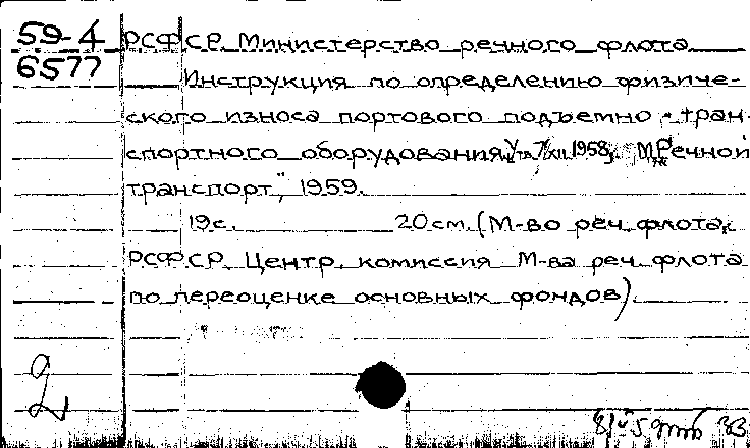 59-4 РСФСР. Министерство речного флота
6577 Инструкция по определению физиче-
ского износа портового подъемно-тран-
спортного оборудования. Утв. 7/XII 1958г. М., "Речной
транспорт", 1959.
19с. 20см. (М-во реч. флота
РСФСР. Центр. комиссия М-ва реч. флота
по переоценке основных фондов).
2